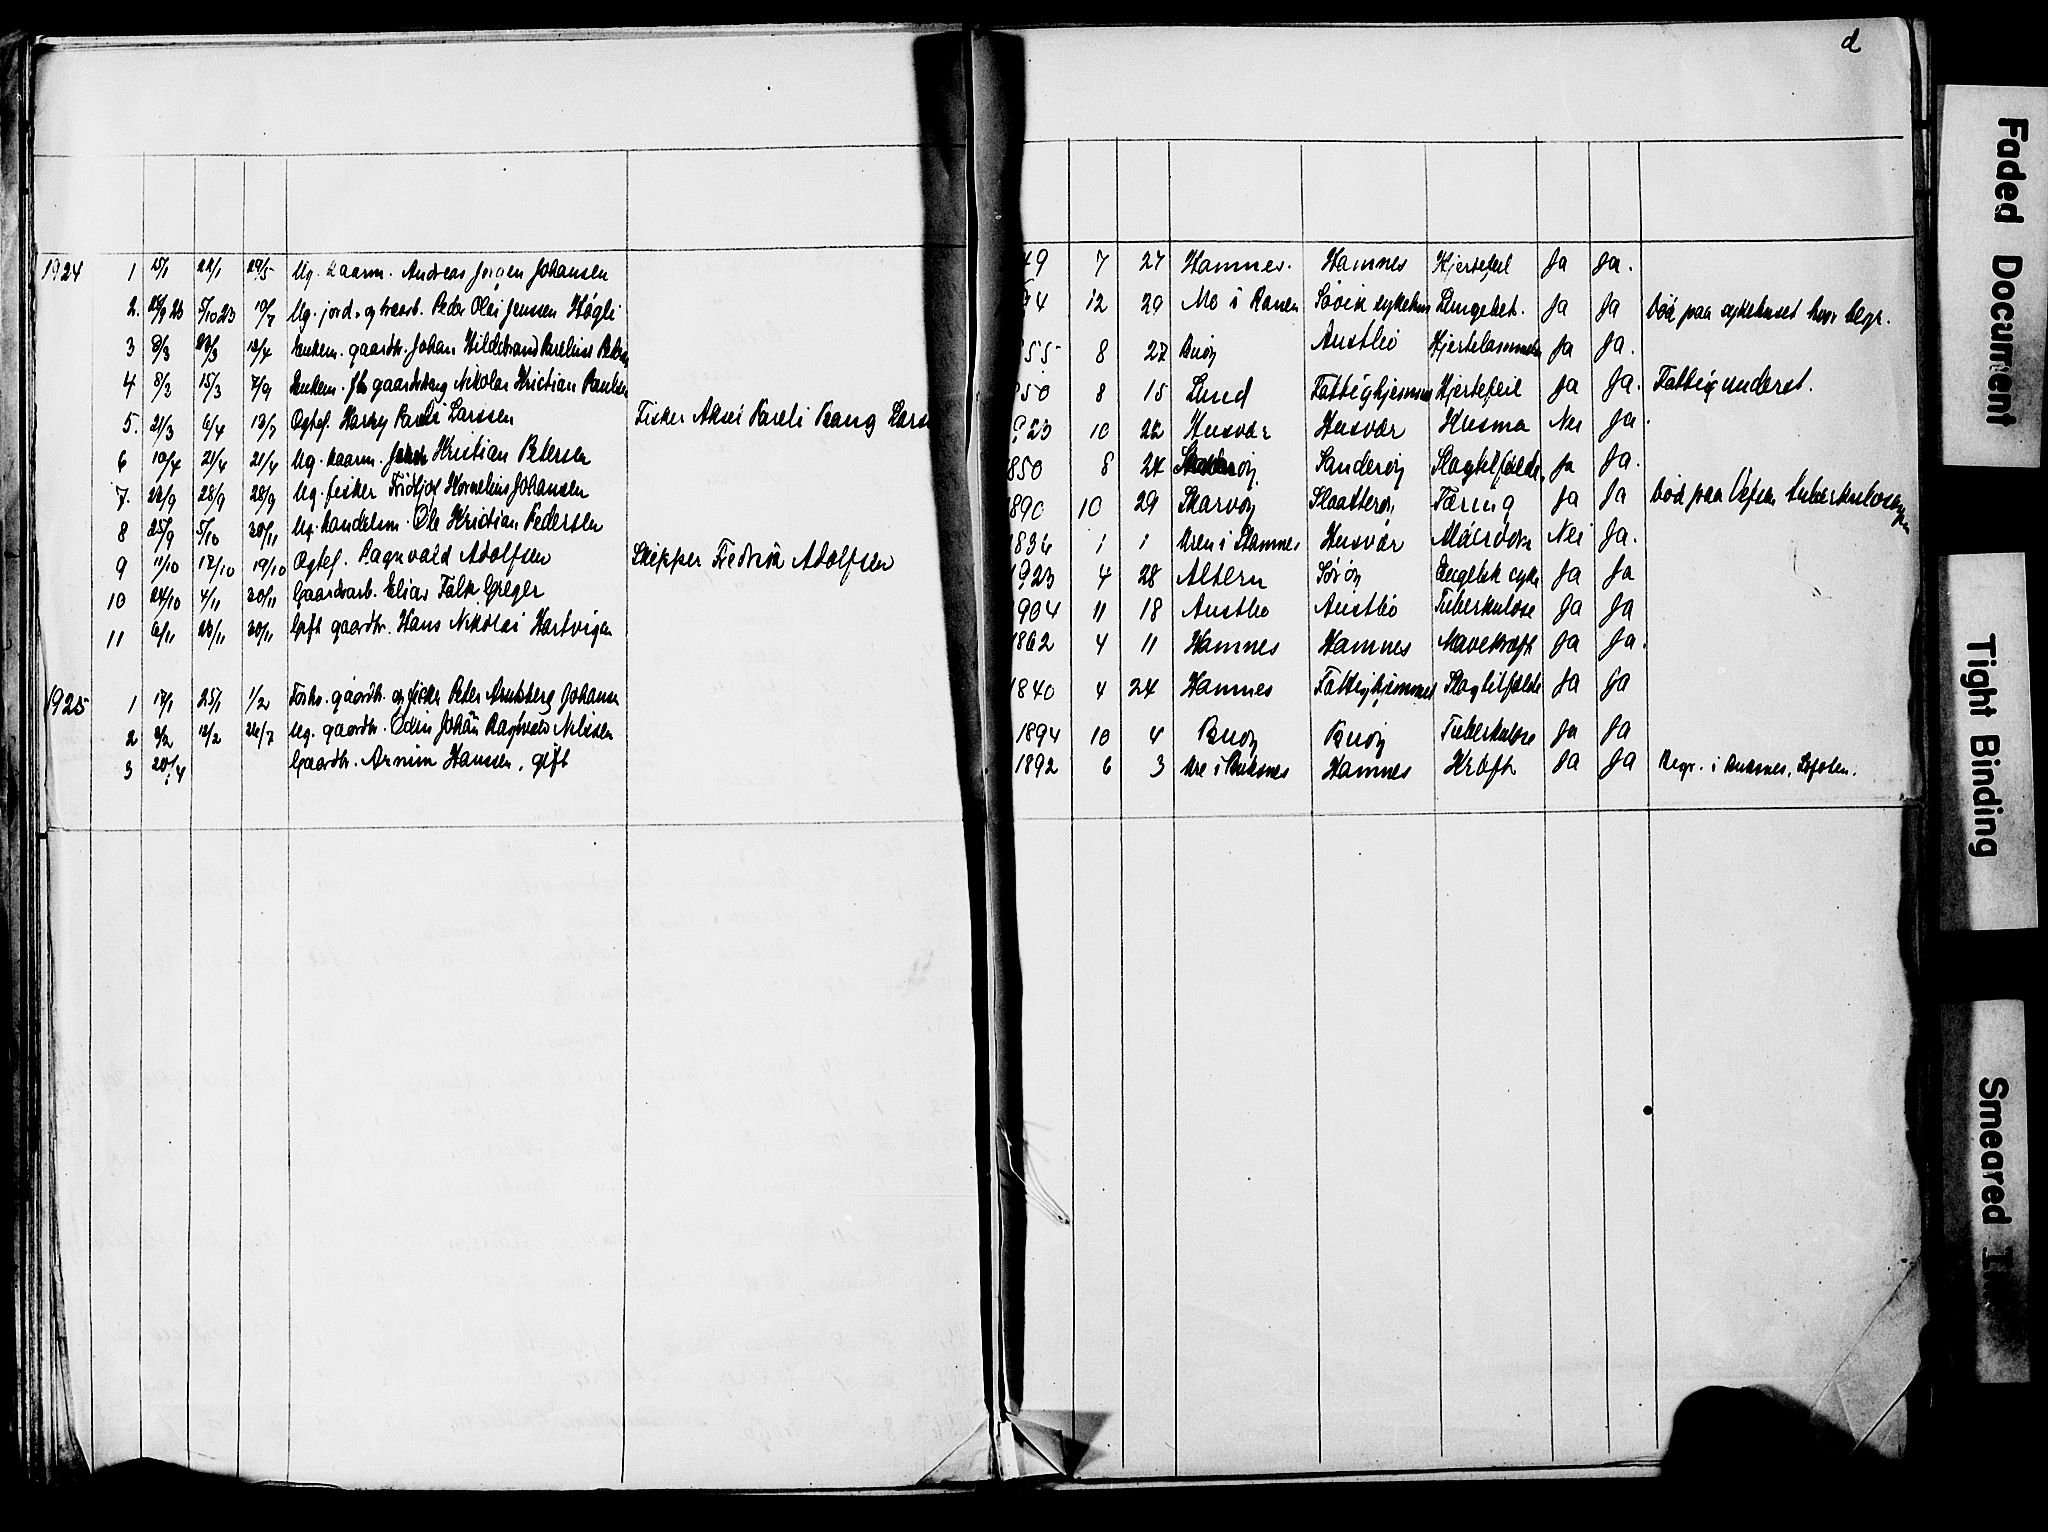 d
1924 1 15/1 22/1 29/5 Ug. Andreas Jørgen Johansen 49 7 27 Hamnes. Hamnes Hjertefeil Ja Ja.
2. 28/9 23 5/10 23 10/7 Ug. jord- og Peder Olai Jensen Høgli 4 12 29 Mo i Ranen Søvik sykehus Lungebet. Ja Ja Død paa sykehuset hvor begr.
3 8/3 23/3 12/4 Enkem. gaardbr. Johan Hildebrand 55 8 27 Buøy Austbø Hjertelammelse Ja Ja.
4 8/3 15/3 7/9 Enkem. Nikolai Kristian Paulsen 850 8 15 Lund Fattighjemmet Hjertefeil Ja Ja. Fattigunderst.
5. 21/3 6/4 13/7 Ogtef. Harry Pareli Larssen Fisker Aksel Pareli Bang Lars 923 10 22 Husvær Husvær Krisma Nei Ja.
6 10/4 21/4 21/4 Ug. Kristian Petersen 850 8 24 Sanderøy Slagtilfælde Ja Ja.
7. 22/9 28/9 28/9 Ug. fisker Fridtjof Kornelius Johansen 1890 10 29 Skarvøy Slaatterøy Tæring Ja Ja Død paa Vefsn
8 25/9 5/10 30/11 Ug. Handelsm. Ole Kristian Pedersen 1836 1 1 i Stamnes Husvær Nei Ja.
9 11/10 19/10 19/10 Ogtef. Ragnvald Adolfsen Skipper Fredrik Adolfsen 1923 4 28 Altern Sørøy Engelsk syke Ja Ja
10 24/10 4/11 30/11 Gaardsarb. Elias Falk Greger 1904 11 18 Austbø Austbø Tuberkulose Ja Ja
11 6/11 23/11 30/11 Gift gaardbr. Hans Nikolai Hartvigsen 1862 4 11 Hamnes Hamnes Mavekræft Ja Ja.
1925 1 17/1 25/1 1/2 Forhv. gaardbr. og fisker Peter Arntsberg Johansen 1840 4 24 Hamnes Fattighjemmet Slagtilfælde Ja Ja
2 2/2 12/2 26/7 Ug. gaardbr. Odin Johan Ragnvald Nilssen 1894 10 4 Buøy Buøy Tuberkulose Ja Ja
3 20/4 Gaardbr. Armim Hanssen, gift 1892 6 3 Are i Buksnes Hamnes Kræft Ja Ja Begr. i Buksnes, Lofoten.
Faded Document
Tight Binding
Smeared